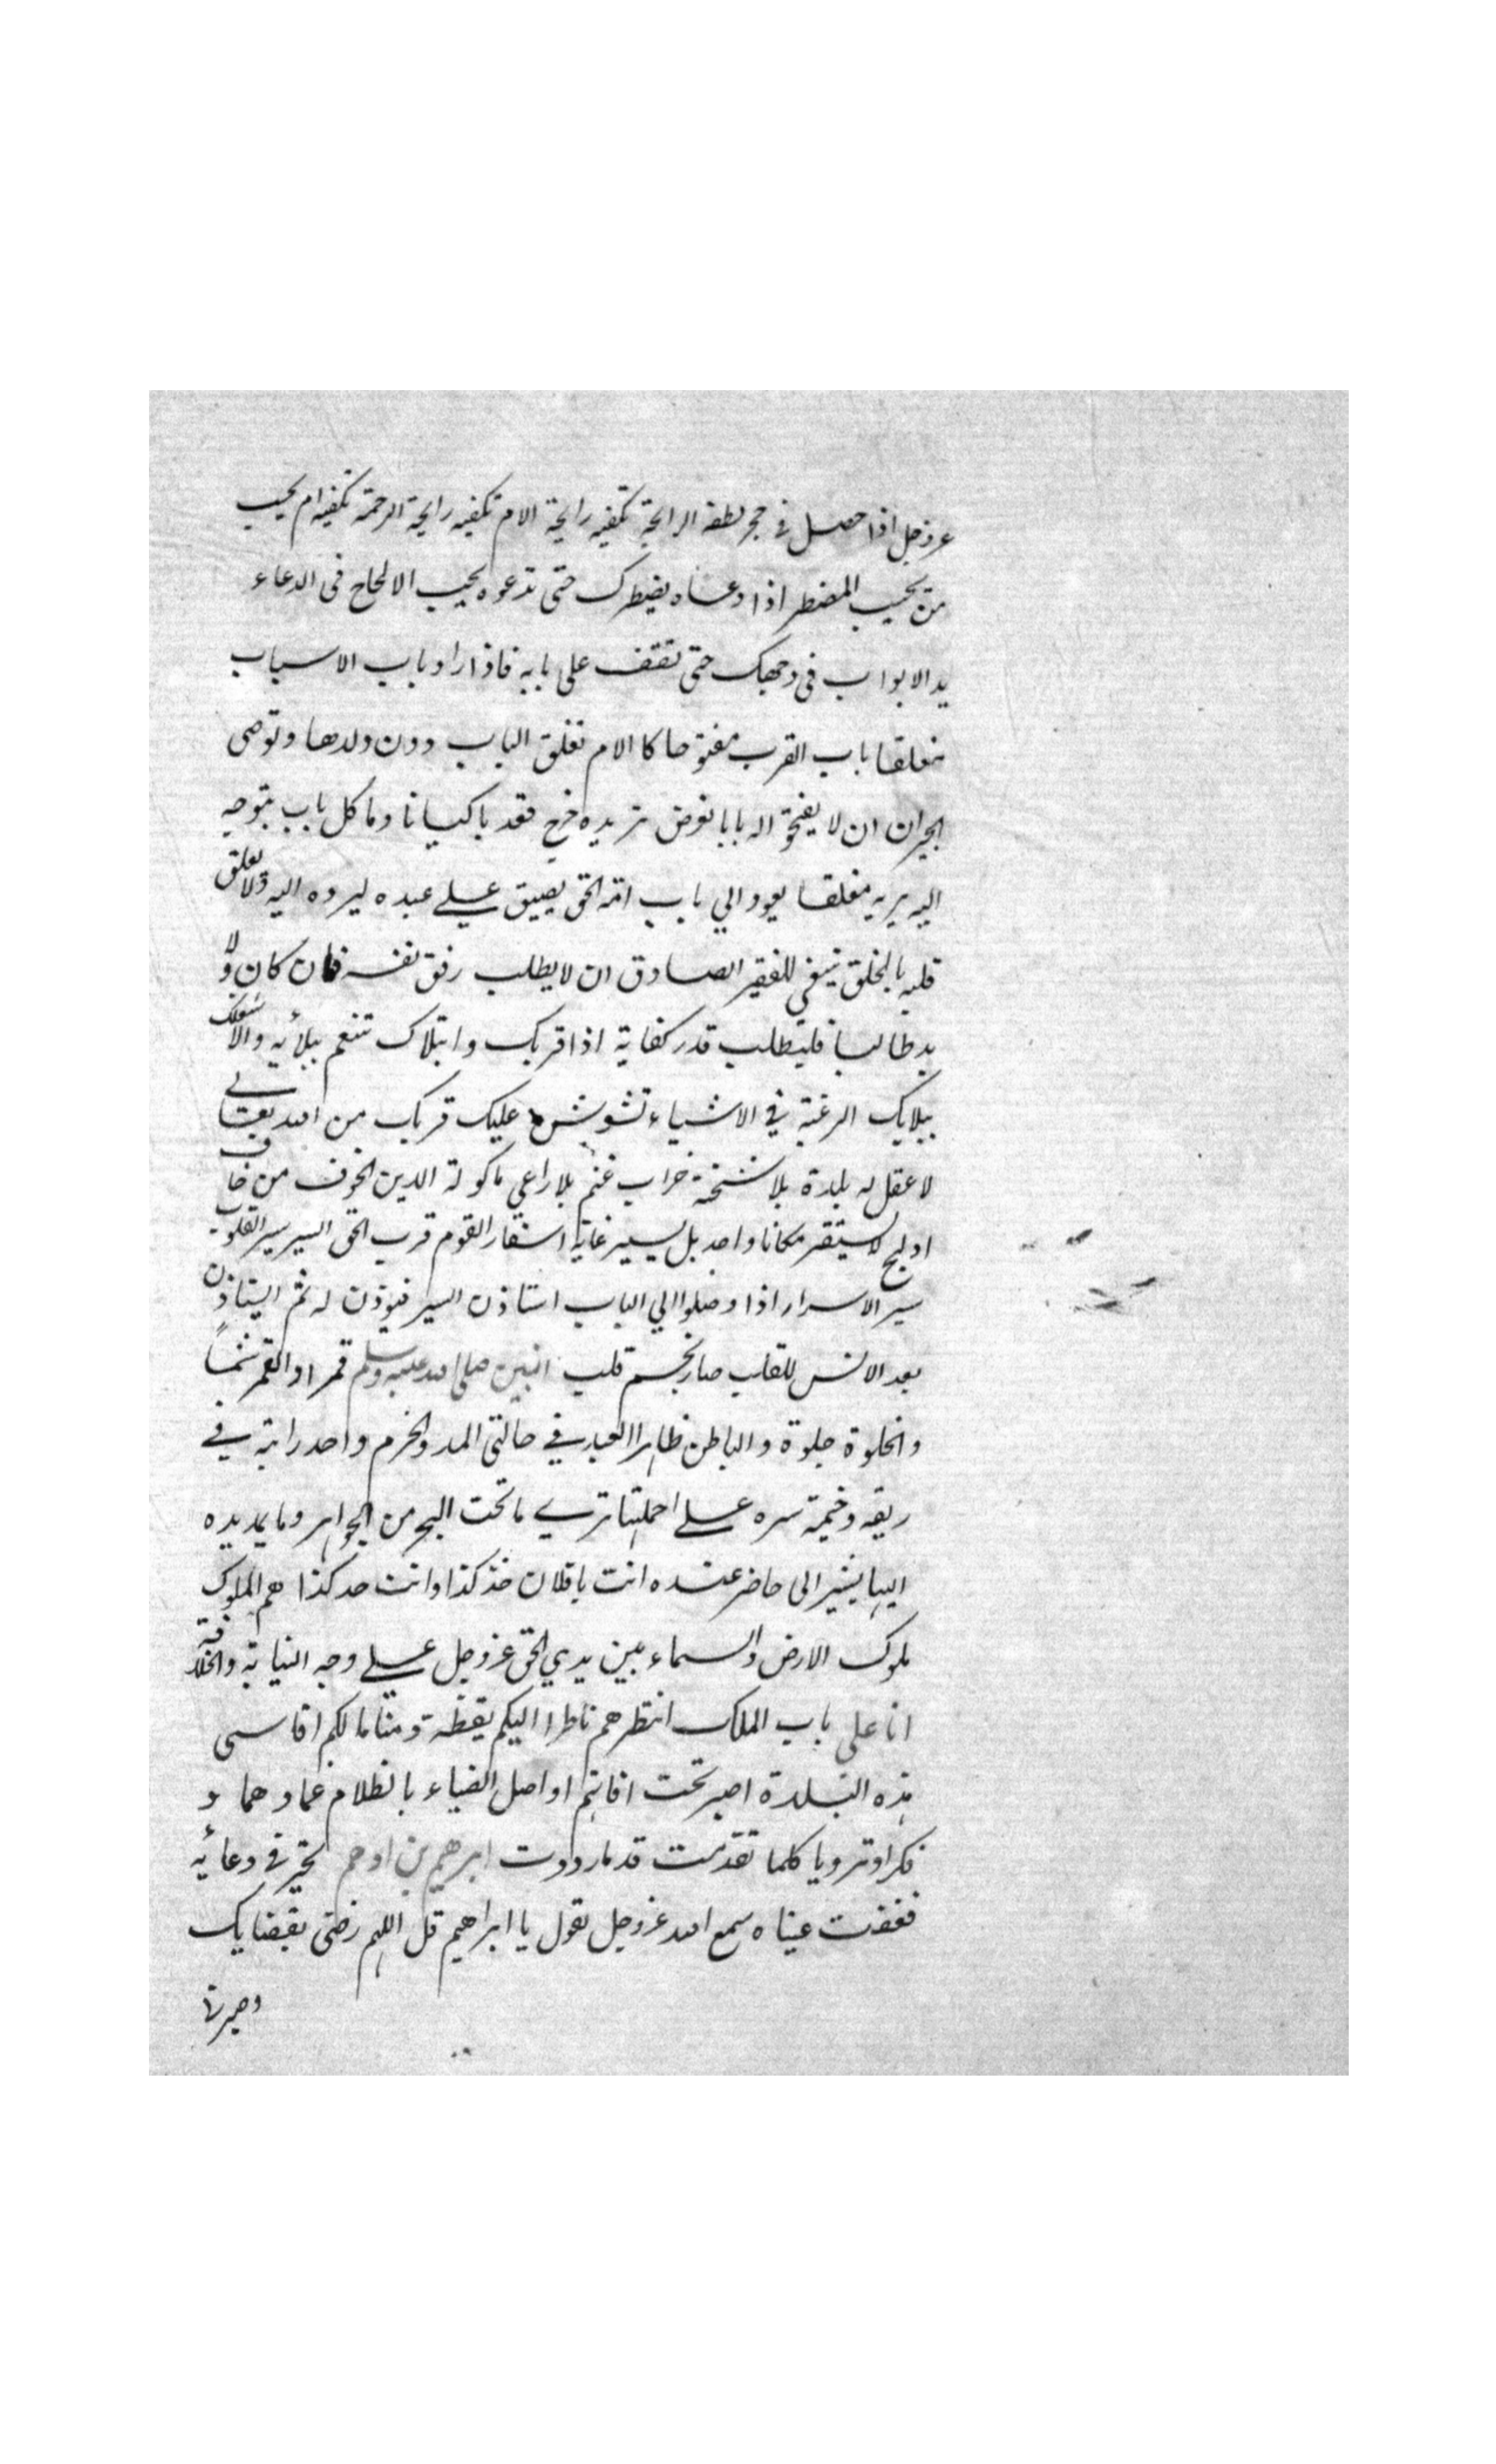 عزوجل اذا حصل في حجر لطفه الرائحة تكفيه رايحة الام تكفيه رايحة الرحمة تكفيه ام يجيب
من يجيب المضطر اذا دعاه يضطرك حتى تدعوه يحب الالحاح في الدعاء
يد الابواب في وجهك حتى تقف على بابه فاذا راد باب الاسباب
مغلقا باب القرب مفتوحا كا الام تغلق الباب دون ولدها وتوصى
الجيران ان لا يفتحوا له بابا نعوض تريده خرج فقد باكيانا وما كل باب يتوجه
اليه يريه مغلقا يعود الي باب امه الحق يضيق علي عبده ليرده اليه ولا يعلق
قلبه بالخلق ينبغي للفقير الصادق ان لا يطلب رفق نفسه فان كان ولا
بد طالبا فليطلب قدر كفاية اذا قربك وابتلاك تنعم ببلائه والا شغلك
ببلايك الرغبة في الاشياء تشوش عليك قربك من الله تعالى
لا عقل له بلدة بلا شحنة خراب غنم بلا راعي ماكولة الدين الخوف من خاف
ادلج لا يستقر مكانا واحد بل يسير غاية اسفار القوم قرب الحق السير سير القلوب
سير الاسرار اذا وصلوا الي الباب استاذن السر فيؤذن له ثم يستاذن
بعد الانس للقلب صار نجم قلب النبين صلى الله عليه وسلم قمرا والقمر شمسا
والخلوة جلوة والباطن ظاهرا العبد في حالتي المد والخرم واحد رابه في
ريقه وخيمة سره علي احملتها ترى ما تحت البحر من الجواهر وما يمد يده
اليها يشير الى حاضر عنده انت يا فلان خذ كذا وانت حد كذا هم الملوك
ملوك الارض والسماء بين يدي الحق عزوجل علي وجه النيابة والخلافة
انا على باب الملك انتظرهم ناظرا اليكم يقظة ومناما لكم اقاسى
هذه البلدة اصبر تحت افاتهم اواصل الضياء بالظلام عماد هما و
فكرا وترويا كلما تقدمت قدما رددت ابرهيم بن ادهم تحير في دعائه
فغفت عيناه سمع الله عزوجل يقول يا ابراهيم قل اللهم رضني بقضايك
وصبرني